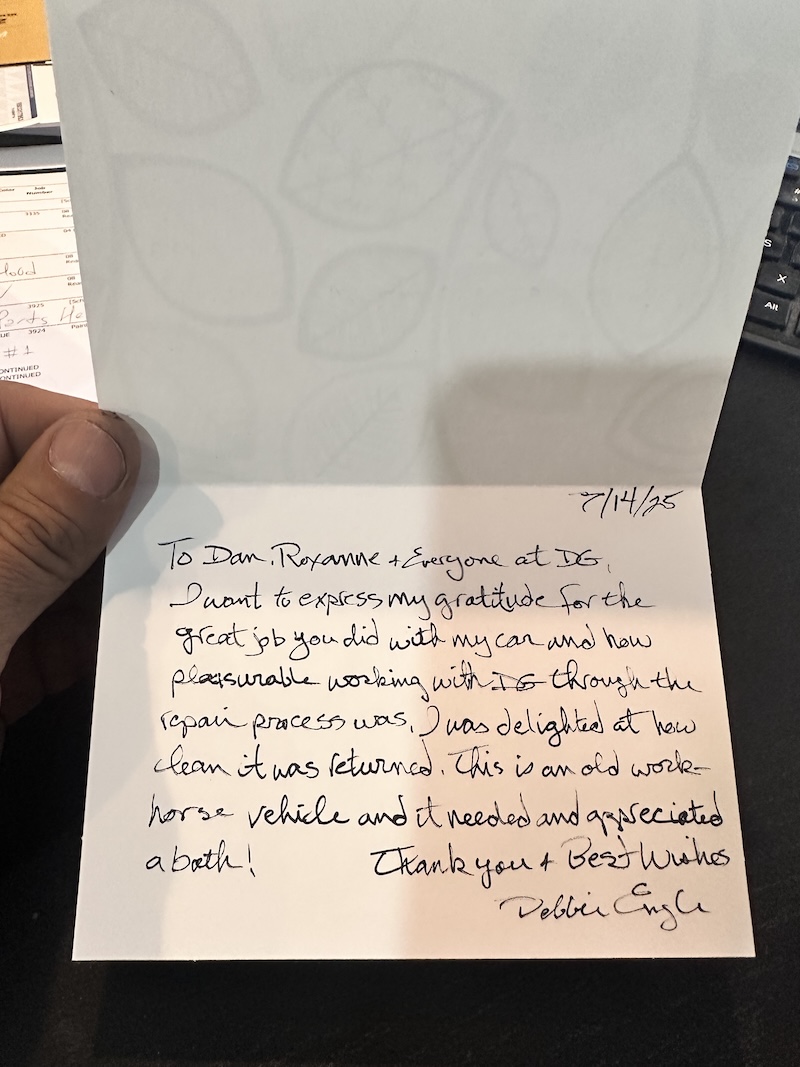 Job
Number
3925
3924
#1
CONTINUED
CONTINUED
S
X
Alt
7/14/25
To Dan, Roxanne + Everyone at DG,
I want to express my gratitude for the
great job you did with my car and how
pleasurable working with DG through the
repair process was. I was delighted at how
clean it was returned. This is an old work-
horse vehicle and it needed and appreciated
a bath! Thank you + Best Wishes
Debbie Engle